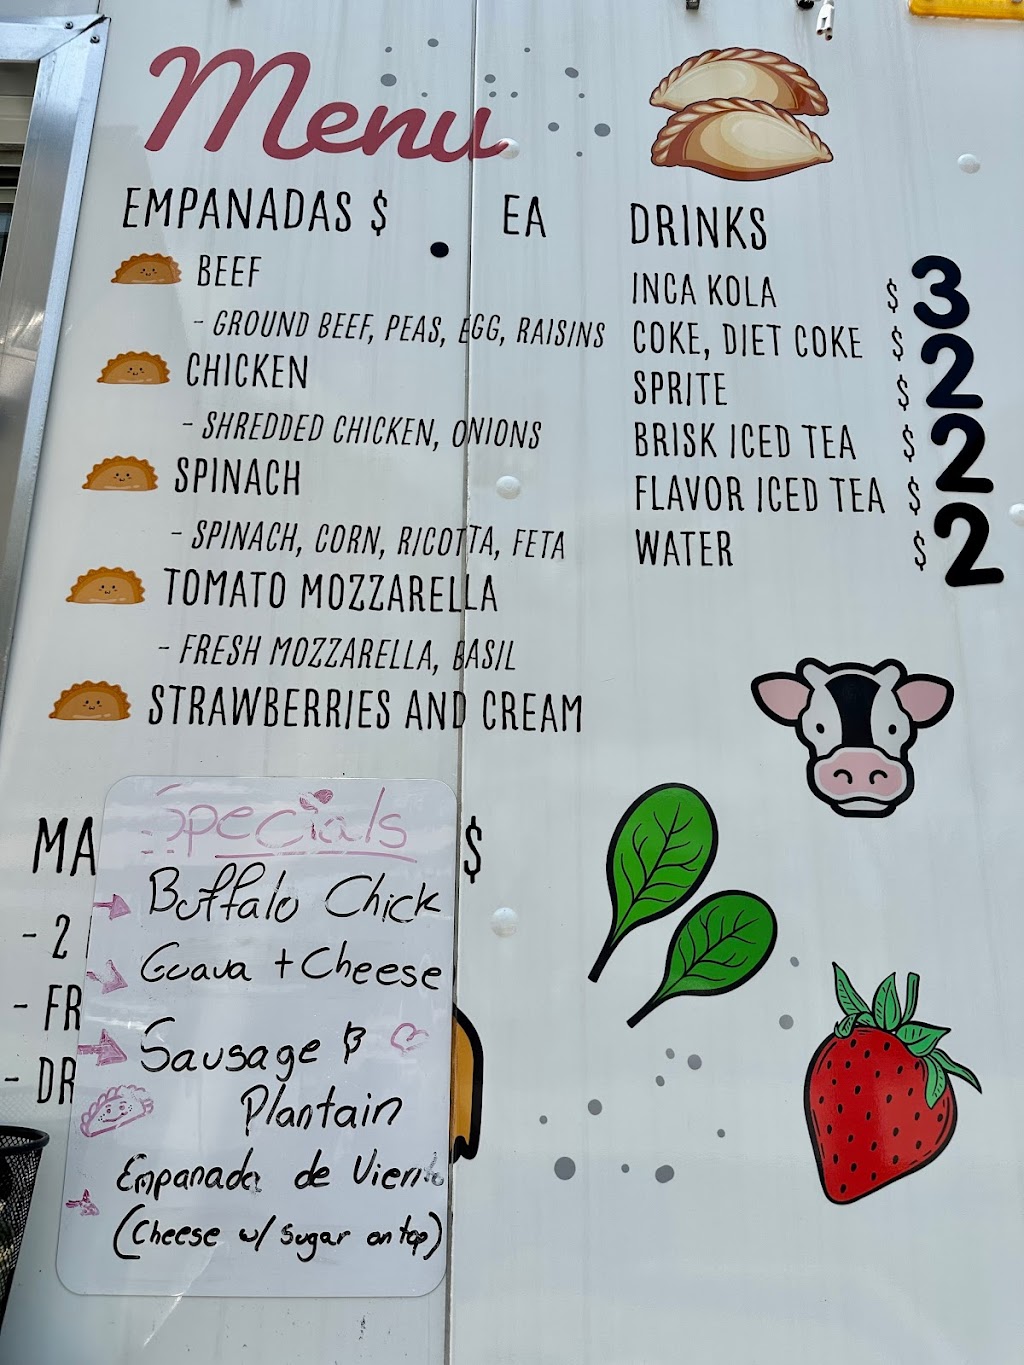 Menu
EMPANADAS $ EA
BEEF
- GROUND BEEF, PEAS, EGG, RAISINS
CHICKEN
- SHREDDED CHICKEN, ONIONS
SPINACH
- SPINACH, CORN, RICOTTA, FETA
TOMATO MOZZARELLA
- FRESH MOZZARELLA, BASIL
STRAWBERRIES AND CREAM
DRINKS
INCA KOLA $ 3
COKE, DIET COKE $ 2
SPRITE $
BRISK ICED TEA $ 2
FLAVOR ICED TEA $
WATER $ 2
MA $
- 2
- FR
- DR
Specials
Buffalo Chick
Guava + Cheese
Sausage &
Plantain
Empanada de Viento
(Cheese w/ sugar on top)